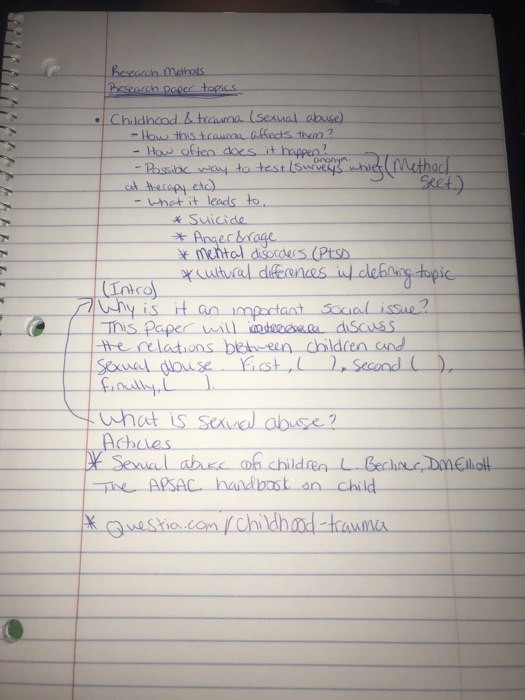 Research Methods
Research paper topics
• Childhood & trauma (sexual abuse)
- How this trauma affects them?
- How often does it happen?
anonym.
- Possible way to test (surveys while } (Method
at therapy, etc) Sect.)
- What it leads to,
* Suicide
* Anger & rage
* mental disorders (PTSD
* cultural differences w/ defining topic
(Intro)
Why is it an important social issue?
This paper will discuss
the relations between children and
sexual abuse. First, ( ), second ( ),
finally, ( ).
What is sexual abuse?
Articles
* Sexual abuse of children L. Berliner, DM Elliott
The APSAC handbook on child
* Questia.com/childhood-trauma